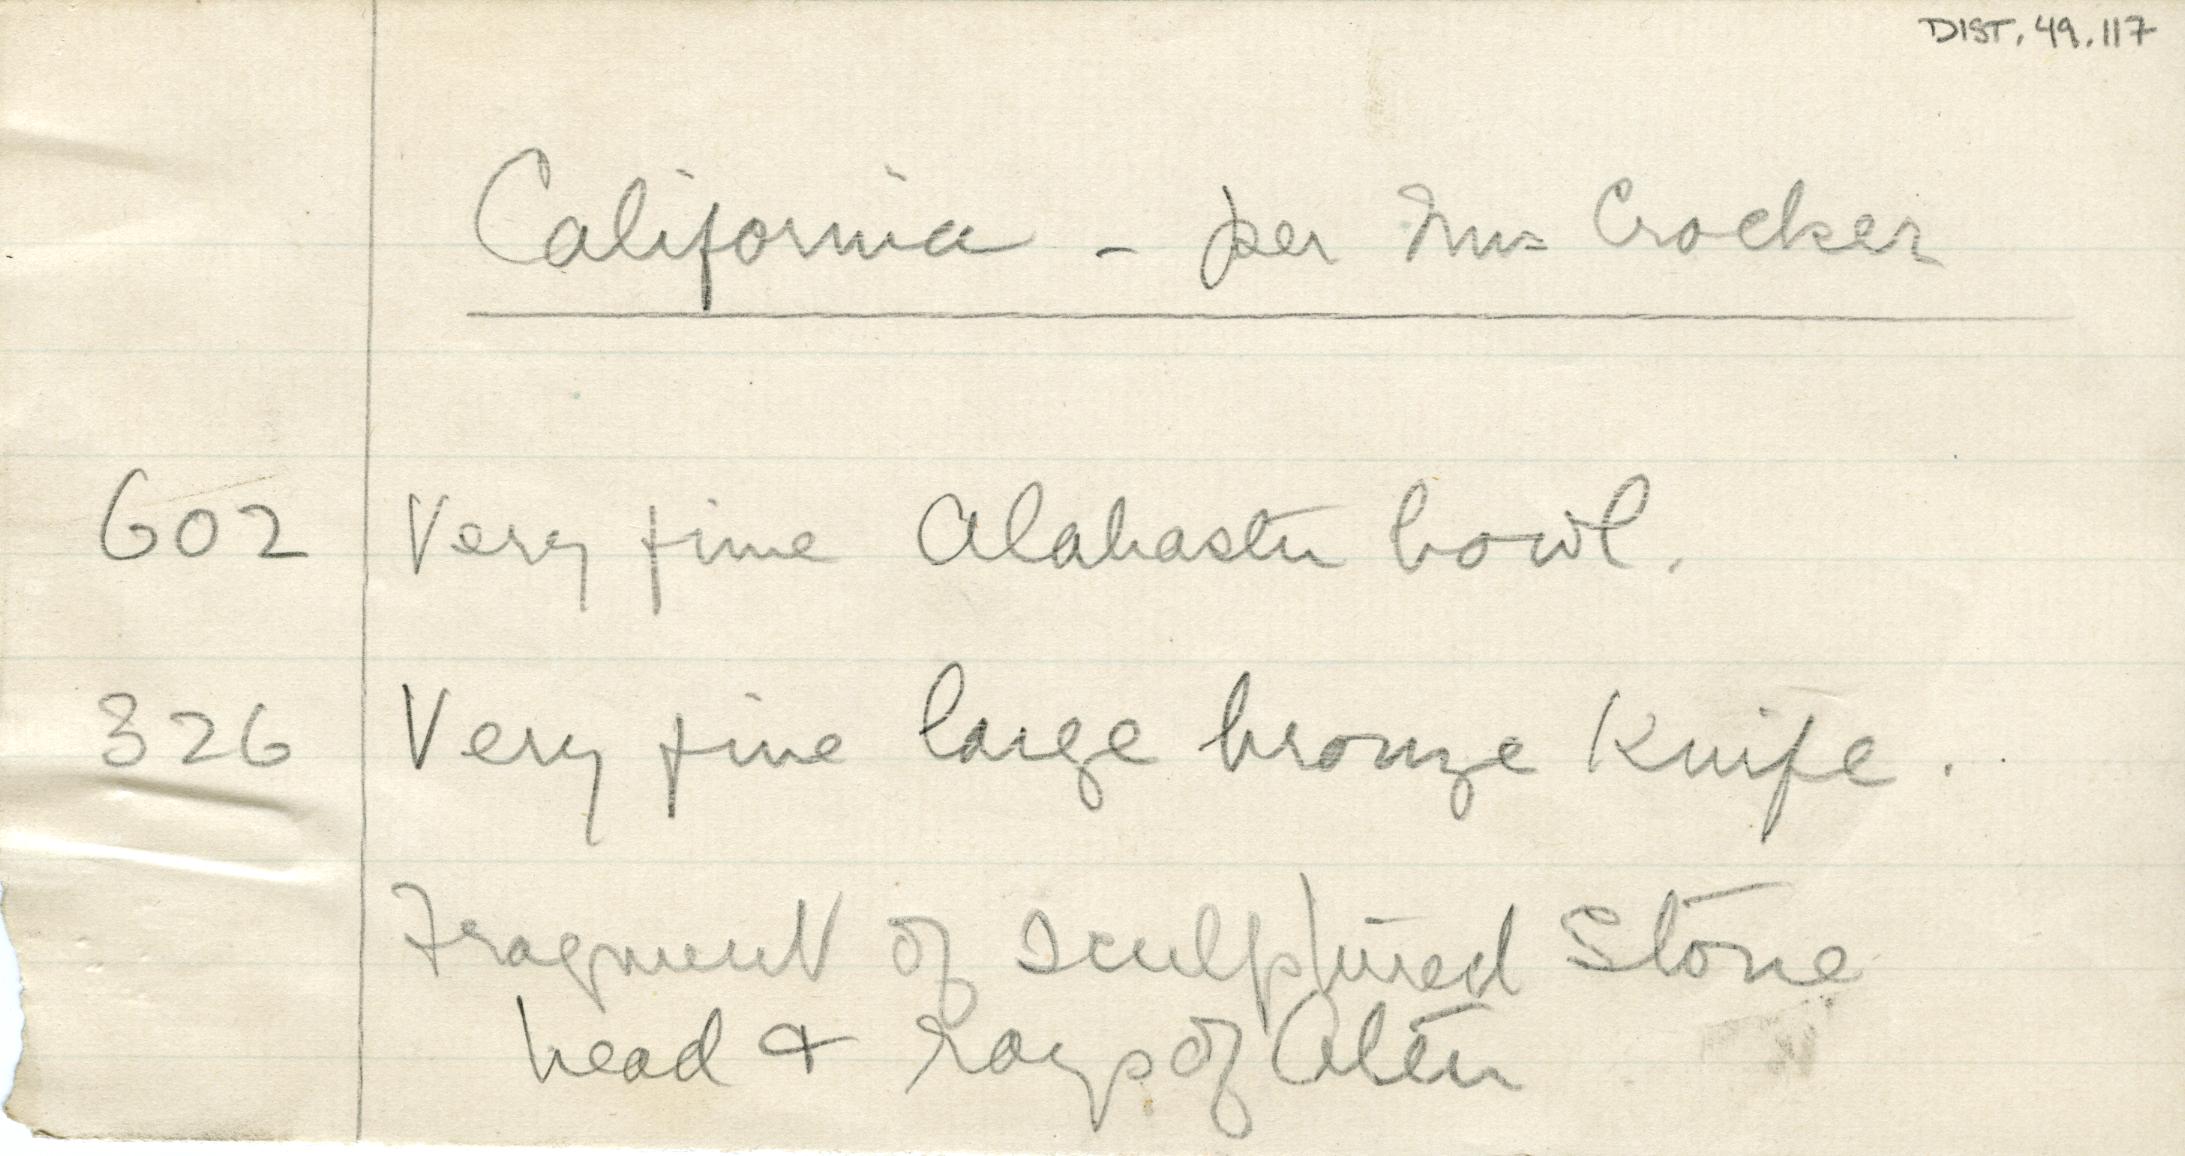 DIST. 49.117
California - per Mrs Crocker
602 Very fine Alabaster bowl.
326 Very fine large bronze Knife.
Fragment of sculptured Stone
head & rays of Aten